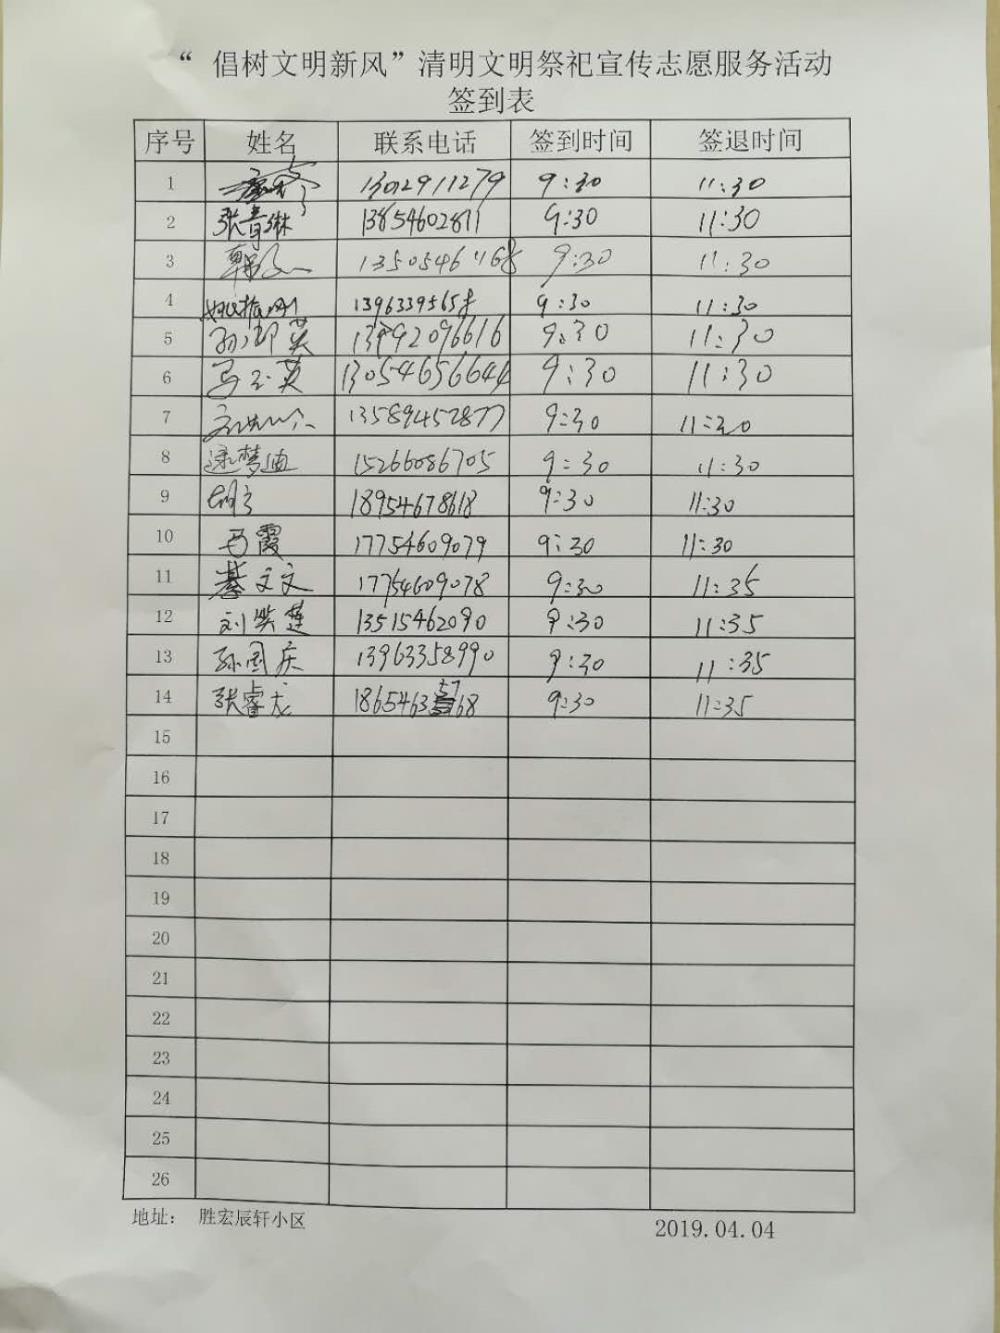 “ 倡树文明新风”清明文明祭祀宣传志愿服务活动
签到表
序号 姓名 联系电话 签到时间 签退时间
1 13012911279 9:30 11:30
2 张青琳 13854602811 9:30 11:30
3 9:30 11:30
4 13963395658 9:30 11:30
5 13992096616 9:30 11:30
6 马玉英 13054656644 9:30 11:30
7 13589452877 9:30 11:30
8 逯梦迪 15266086705 9:30 11:30
9 18954678618 9:30 11:30
10 马霞 17754609079 9:30 11:30
11 綦文文 17754609078 9:30 11:35
12 刘笑莲 13515462090 9:30 11:35
13 孙国庆 13963358990 9:30 11:35
14 张睿龙 18654635768 9:30 11:35
15
16
17
18
19
20
21
22
23
24
25
26
地址： 胜宏辰轩小区 2019.04.04